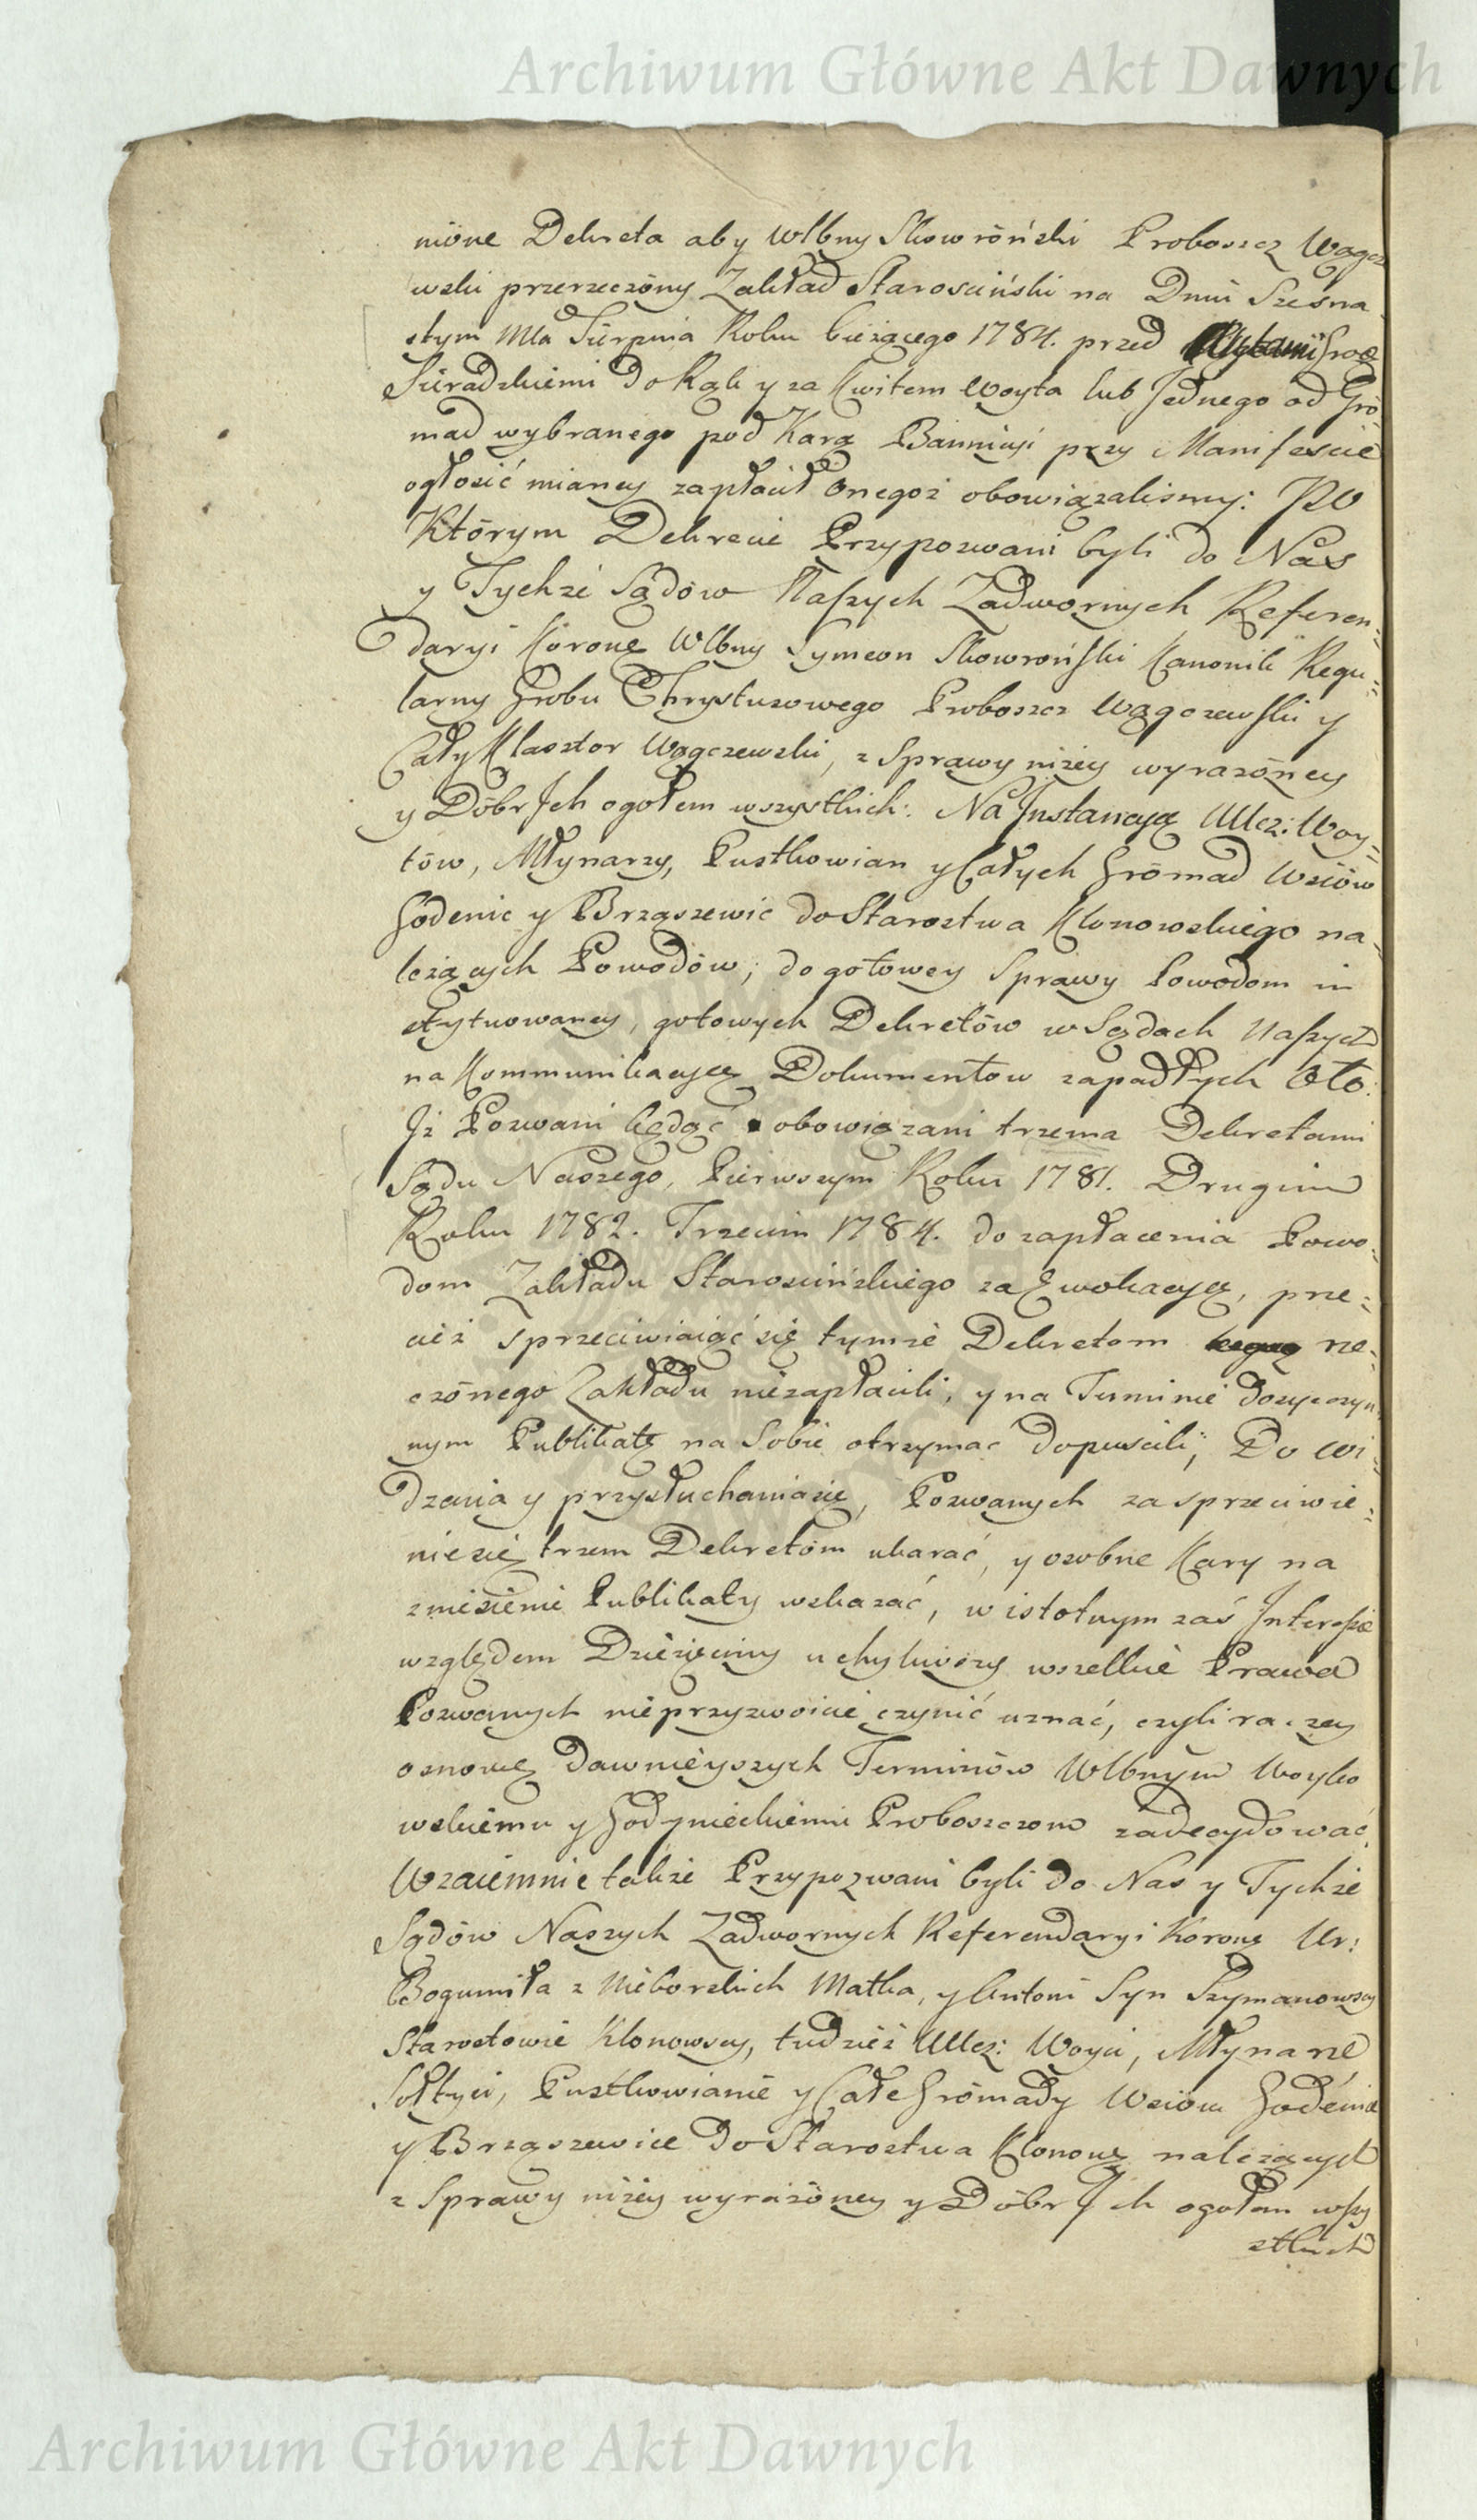 Archiwum Główne Akt Dawnych
nione Dekreta aby Wlbny Skowroński Proboszcz Wągcz
wski przerzeczony Zakład Starosciński na Dniu Szesna
stym Mca Sierpnia Roku bieżącego 1784. przed
Sieradzkiemi do Rąk y za Kwitem Woyta lub Jednego od Gro
mad wybranego pod Karą Bannicyi przy Manifescie
ogłosić mianey zapłacił onegoż obowiązalismy: Po
Którym Dekrecie Przypozwani byli do Nas
y Tychże Sądów Naszych Zadwornych Referen=
daryi Korone Wlbny Symeon Skowroński Kanonik Regu=
larny Grobu Chrystusowego Proboszcz Wągczewski y
Cały Klasztor Wągczewski, z Sprawy niżey wyrażoney
y Dóbr Jch ogołem wszystkich: Na Jnstancyą Ucz: Woy=
tów, Młynarzy, Pustkowian y Całych Gromad Wsiów
Godenic y Brząszewic do Starostwa Klonowskiego na=
leżących Powodów; do gotowey Sprawy Powodom in
stytuowaney, gotowych Dekretów w Sądach Naszych
na Kommunikacyę Dokumentow zapadłych Oto:
Jż Pozwani będąc obowiązani trzema Dekretami
Sądu Naszego, Pierwszym Roku 1781. Drugim
Roku 1782. Trzecim 1784. do zapłacenia Powo=
dom Zakładu Staroscińskiego za Ewokacyą, prze=
cież sprzeciwiaiąc się tymże Dekretom rze=
czonego Zakładu niezapłacili, y na Terminie dozyczyn
nym Publikatę na Sobie otrzymac dopuscili; Do wi=
dzenia y przysłuchania się, Pozwanych za sprzeciwie=
nie się trzem Dekretom ukarać, y osobne Kary na
zniesienie Publikaty wskazać, w istotnym zaś Jnteresie
względem Dziesięciny uchyliwszy wszelkie Prawa
Pozwanych nieprzyzwoicie czynić uznać, czyli raczey
osnowę dawnieyszych Terminów Wlbnym Woyko
wskiemu y Godynieckiemu Proboszczom zadecydować.
Wzaiemnie także Przypozwani byli do Nas y Tychże
Sądów Naszych Zadwornych Referendaryi Korone Ur:
Bogumiła z Nieborskich Matka, y Antoni Syn Szymanowscy
Starostowie Klonowscy, tudzież Ucz: Woyci, Młynarze
Sołtysi, Pustkowianie y Całe Gromady Wsiów Godenice
y Brząszewice do Starostwa Klonowe należących
z Sprawy niżey wyrażoney y Dóbr Jch ogołem wszy
stkich
Archiwum Główne Akt Dawnych